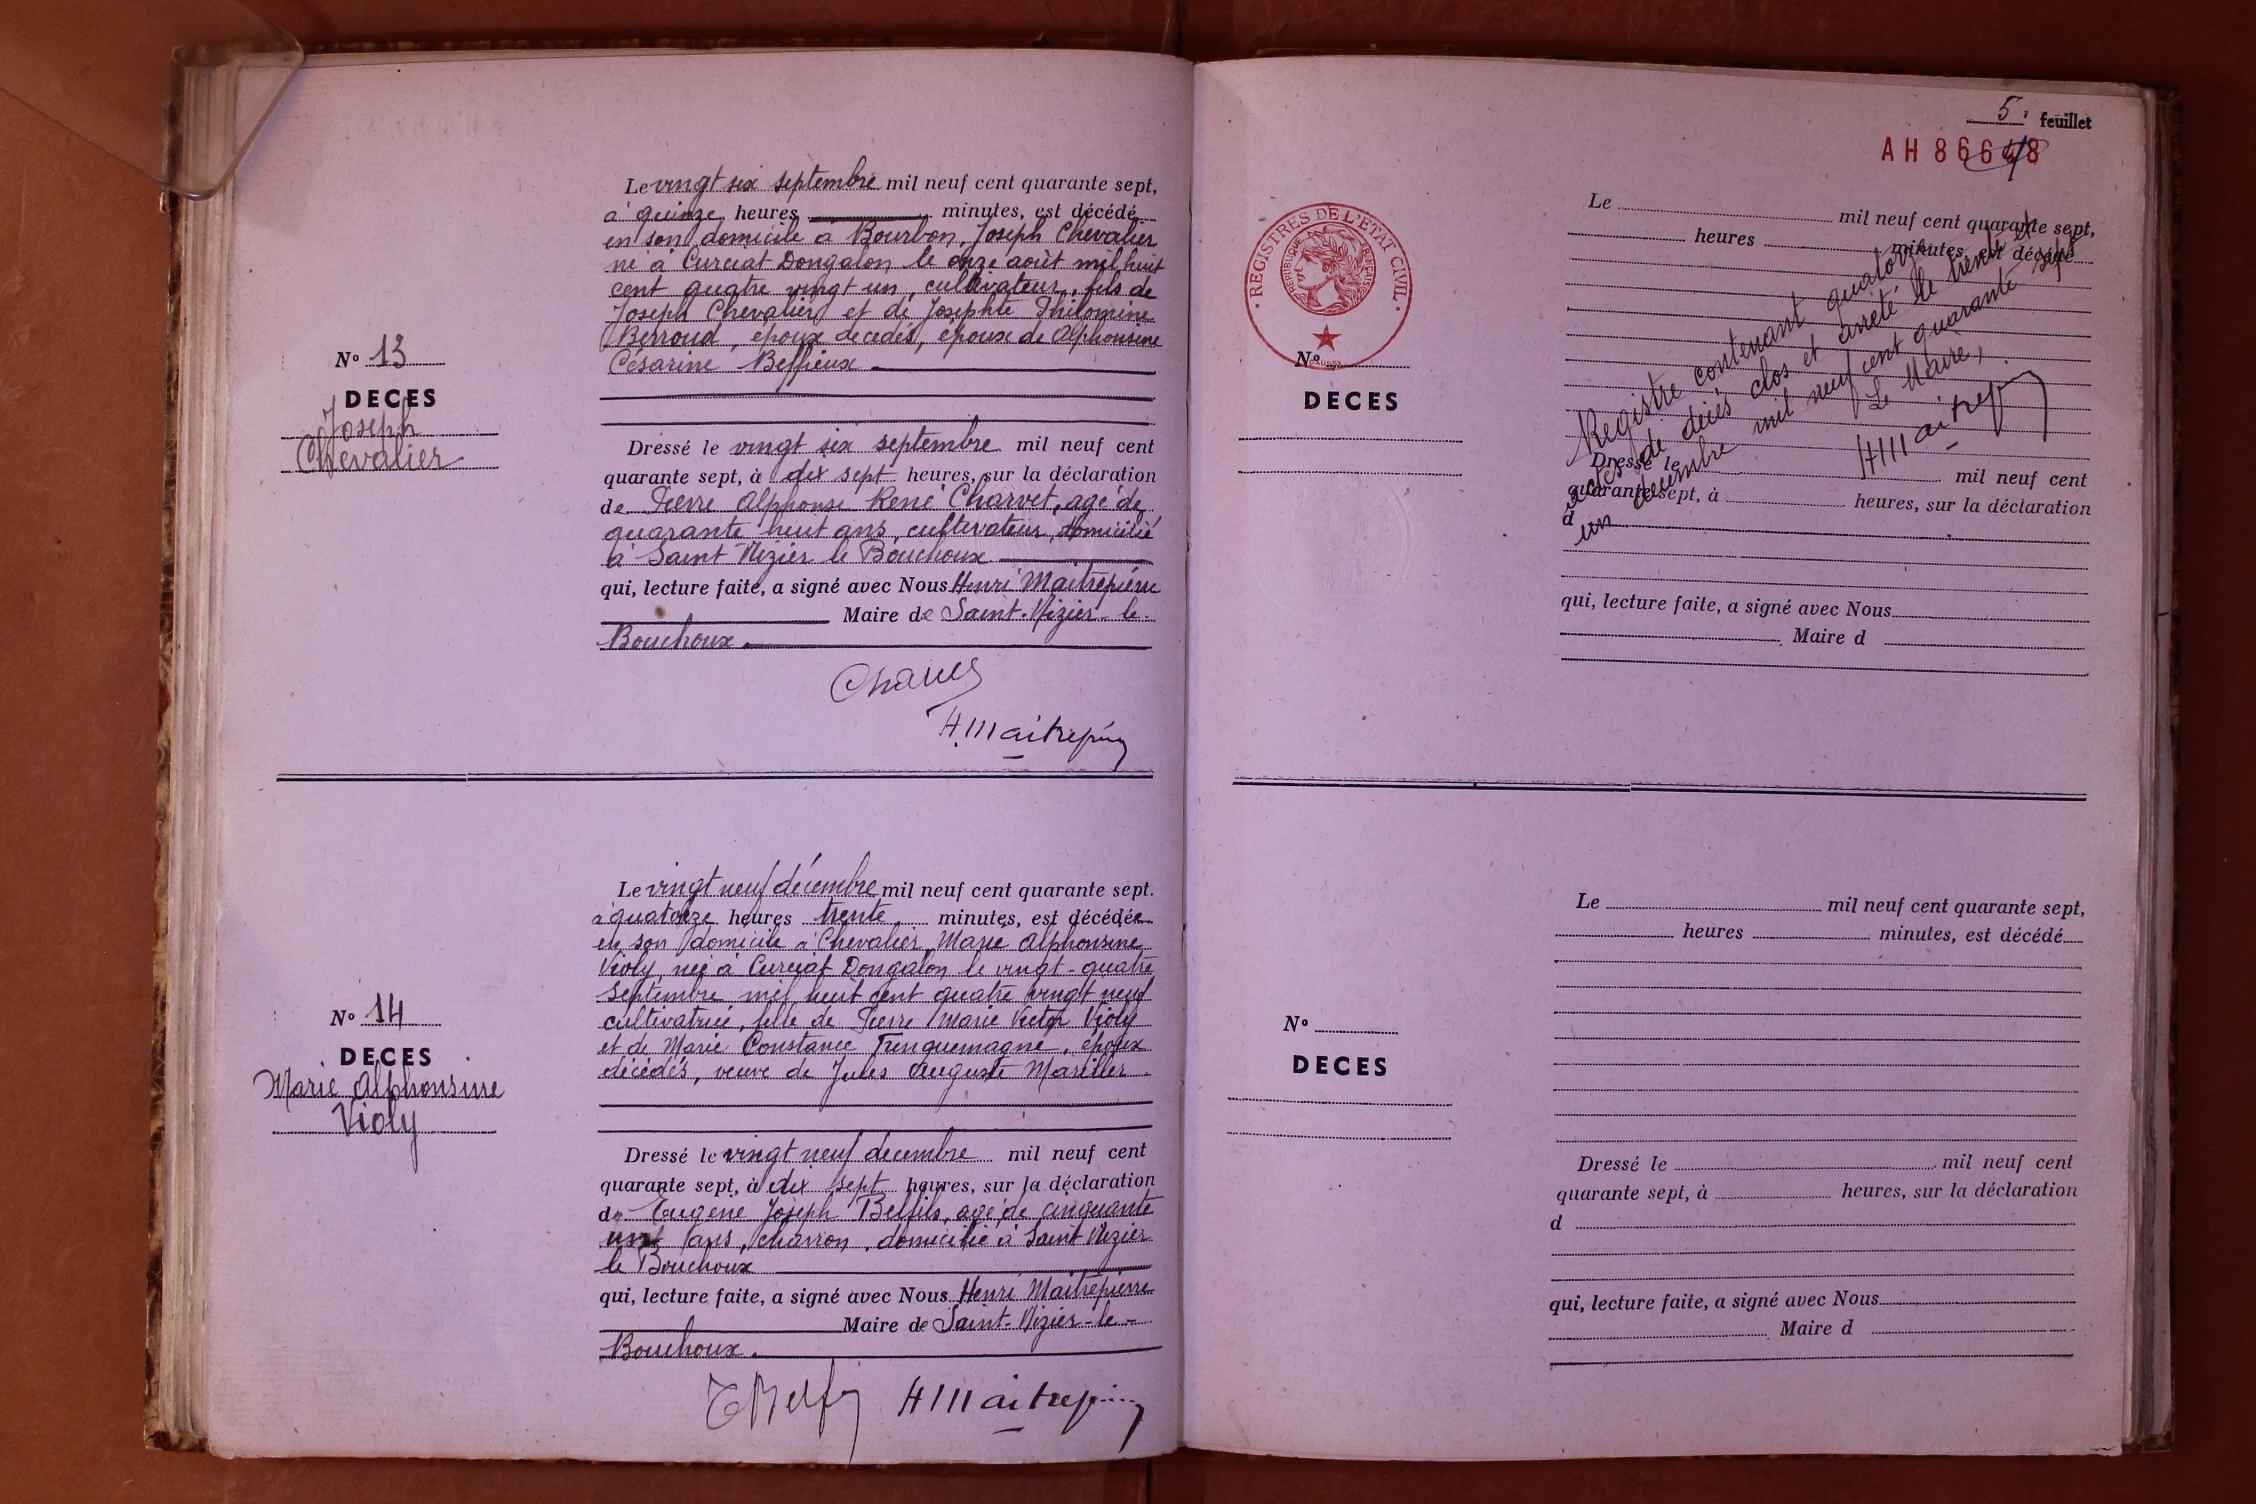 Le vingt six septembre mil neuf cent quarante sept,
à quinze heures minutes, est décédé
en son domicile à Bourbon, Joseph Chevalier
né à Curciat Dongalon le onze août mil huit
cent quatre vingt un, cultivateur, fils de
Joseph Chevalier et de Josephte Philomine
Berroud, époux décédés, époux de Alphonsine
Césarine Beffieux
N° 13
DECES
Joseph
Chevalier
Dressé le vingt six septembre mil neuf cent
quarante sept, à dix sept heures, sur la déclaration
de Pierre Alphonse René Charvet, agé de
quarante huit ans, cultivateur, domicilié
à Saint Nizier le Bouchoux
qui, lecture faite, a signé avec Nous Henri Maitrepierre
Maire de Saint-Nizier-le-
Bouchoux.
H Maitrepierre
Le vingt neuf décembre mil neuf cent quarante sept.
à quatorze heures trente minutes, est décédée
en son domicile à Chevalier, Marie Alphonsine
Violy, née à Curciat Dongalon le vingt-quatre
septembre mil huit cent quatre vingt neuf
cultivatrice, fille de Pierre Marie Victor Violy
et de Marie Constance Trinquemagne, époux
décédés, veuve de Jules Auguste Mareiller.
N° 14
DECES
Marie Alphonsine
Violy
Dressé le vingt neuf décembre mil neuf cent
quarante sept, à dix sept heures, sur la déclaration
de Eugène Joseph Belfils, agé de cinquante
ans, charron, domicilié à Saint Nizier
le Bouchoux
qui, lecture faite, a signé avec Nous Henri Maitrepierre
Maire de Saint-Nizier-le-
Bouchoux.
H Maitrepierre
5. feuillet
AH 86648
REGISTRES DE L'ETAT CIVIL
REPUBLIQUE FRANÇAISE
Le mil neuf cent quarante sept,
heures minutes, est décédé
N°
DECES
Registre contenant quatorze
actes de décès clos et arreté le trente et
un decembre mil neuf cent quarante sept
Le Maire,
H Maitrepierre
Dressé le mil neuf cent
quarante sept, à heures, sur la déclaration
d
qui, lecture faite, a signé avec Nous
Maire d
Le mil neuf cent quarante sept,
heures minutes, est décédé
N°
DECES
Dressé le mil neuf cent
quarante sept, à heures, sur la déclaration
d
qui, lecture faite, a signé avec Nous
Maire d